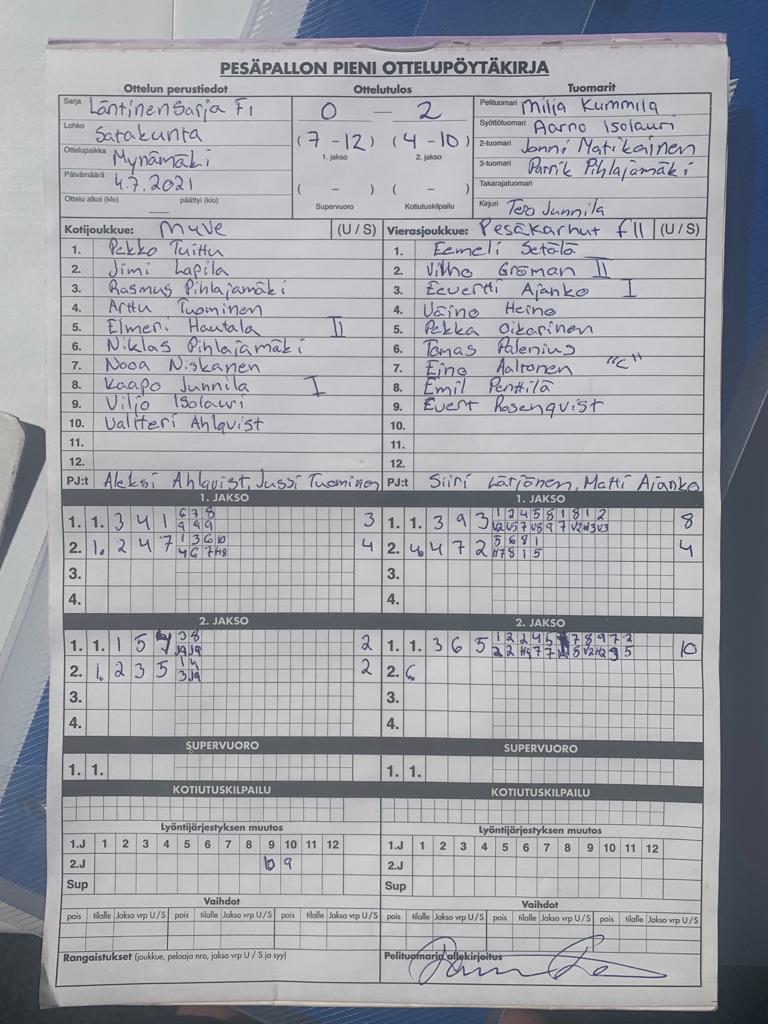 PESÄPALLON PIENI OTTELUPÖYTÄKIRJA
Ottelun perustiedot
Sarja Läntinen Sarja F1
Lohko Satakunta
Ottelupaikka Mynämäki
Päivämäärä 4.7.2021
Ottelu alkoi (klo) päättyi (klo)
Ottelutulos
0 — 2
(7 - 12) (4 - 10)
1. jakso 2. jakso
( - ) ( - )
Supervuoro Kotiutuskilpailu
Tuomarit
Pelituomari Milja Kummila
Syöttötuomari Aarno Isolauri
2-tuomari Jonni Matikainen
3-tuomari Patrik Pihlajamäki
Takarajatuomari
Kirjuri Tero Junnila
Kotijoukkue: MuVe (U / S)
1. Pekko Tuittu
2. Jimi Lapila
3. Rasmus Pihlajamäki
4. Arttu Tuominen
5. Elmeri Hautala II
6. Niklas Pihlajamäki
7. Nooa Niskanen
8. Kaapo Junnila I
9. Viljo Isolauri
10. Valtteri Ahlqvist
11.
12.
PJ:t Aleksi Ahlqvist, Jussi Tuominen
Vierasjoukkue: Pesäkarhut fII (U / S)
1. Eemeli Setälä
2. Vilho Gröman II
3. Eevertti Ajanko I
4. Väinö Heino
5. Pekka Oikarinen
6. Tomas Palenius
7. Eino Aaltonen "C"
8. Emil Penttilä
9. Evert Rosenqvist
10.
11.
12.
PJ:t Siiri Matti Ajanko
1. JAKSO
1. 1. 3 4 1 6 7 8 3
9 9 9
2. 1. 2 4 7 1 3 6 10 4
4 6 7 H8
3.
4.
1. JAKSO
1. 1. 3 9 3 1 2 4 5 8 1 8 1 2 8
2. 4. 4 7 2 5 6 8 1 4
H7 8 1 5
3.
4.
2. JAKSO
1. 1. 1 5 3 8 2
2. 1. 2 3 5 2
3.
4.
2. JAKSO
1. 1. 3 6 5 1 2 2 4 5 7 8 9 7 2 10
2. 6
3.
4.
SUPERVUORO
1. 1.
SUPERVUORO
1. 1.
KOTIUTUSKILPAILU
KOTIUTUSKILPAILU
Lyöntijärjestyksen muutos
1.J 1 2 3 4 5 6 7 8 9 10 11 12
2.J 10 9
Sup
Lyöntijärjestyksen muutos
1.J 1 2 3 4 5 6 7 8 9 10 11 12
2.J
Sup
Vaihdot
pois tilalle Jakso vrp U / S pois tilalle Jakso vrp U / S pois tilalle Jakso vrp U / S
Vaihdot
pois tilalle Jakso vrp U / S pois tilalle Jakso vrp U / S pois tilalle Jakso vrp U / S
Rangaistukset (joukkue, pelaaja nro, jakso vrp U / S ja syy)
Pelituomarin allekirjoitus